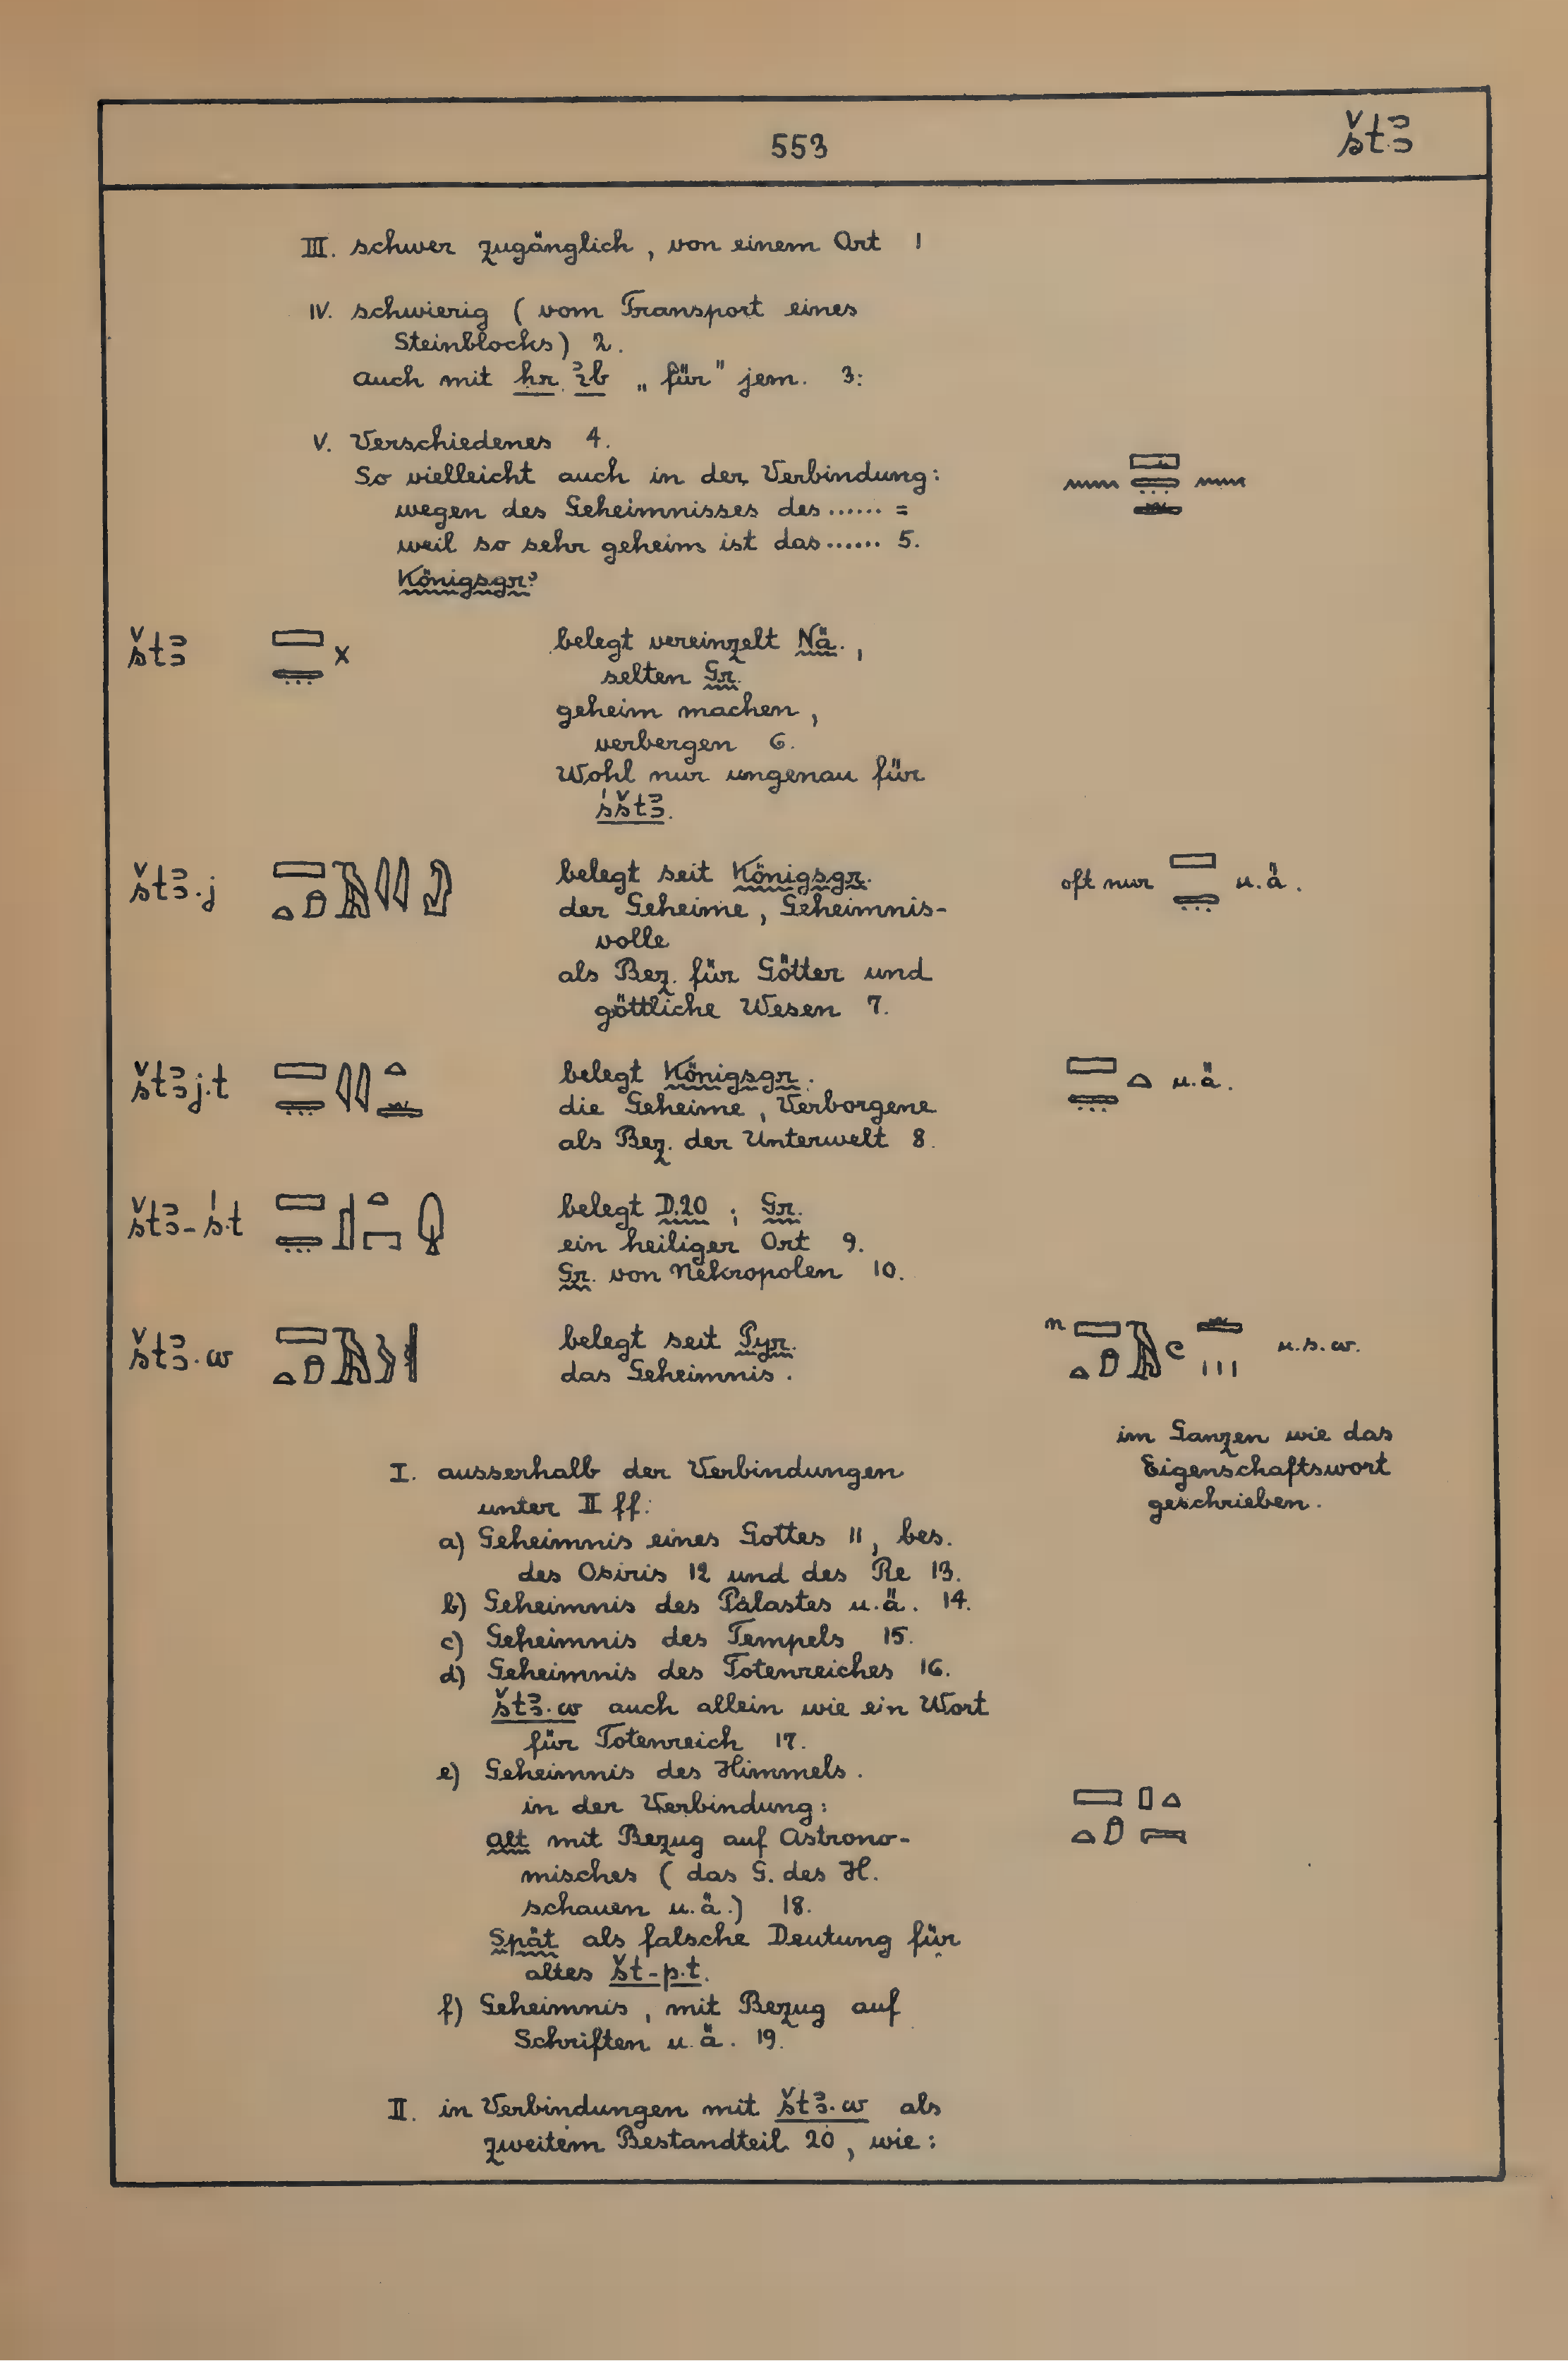 553
štꜣ
III. schwer zugänglich, von einem Ort 1
IV. schwierig (vom Transport eines
Steinblocks) 2.
auch mit ḥr ı͗b „für" jem. 3:
V. Verschiedenes 4.
So vielleicht auch in der Verbindung:
wegen des Geheimnisses des...... =
weil so sehr geheim ist das...... 5.
Königsgr.
štꜣ
belegt vereinzelt Nä.,
selten Gr.
geheim machen,
verbergen 6.
Wohl nur ungenau für
śštꜣ.
štꜣ.j
belegt seit Königsgr.
der Geheime, Geheimnis-
volle
als Bez. für Götter und
göttliche Wesen 7.
oft nur u.ä.
štꜣj.t
belegt Königsgr.
die Geheime, Verborgene
als Bez. der Unterwelt 8.
u.ä.
štꜣ-ś.t
belegt D.20; Gr.
ein heiliger Ort 9.
Gr. von Nekropolen 10.
štꜣ.w
belegt seit Pyr.
das Geheimnis.
n u.s.w.
im Ganzen wie das
Eigenschaftswort
geschrieben.
I. ausserhalb der Verbindungen
unter II ff:
a) Geheimnis eines Gottes 11, bes.
des Osiris 12 und des Re 13.
b) Geheimnis des Palastes u.ä. 14.
c) Geheimnis des Tempels 15.
d) Geheimnis des Totenreiches 16.
štꜣ.w auch allein wie ein Wort
für Totenreich 17.
e) Geheimnis des Himmels.
in der Verbindung:
alt mit Bezug auf Astrono-
misches (das G. des H.
schauen u.ä.) 18.
Spät als falsche Deutung für
altes št-p.t.
f) Geheimnis, mit Bezug auf
Schriften u.ä. 19.
II. in Verbindungen mit štꜣ.w als
zweitem Bestandteil 20, wie: